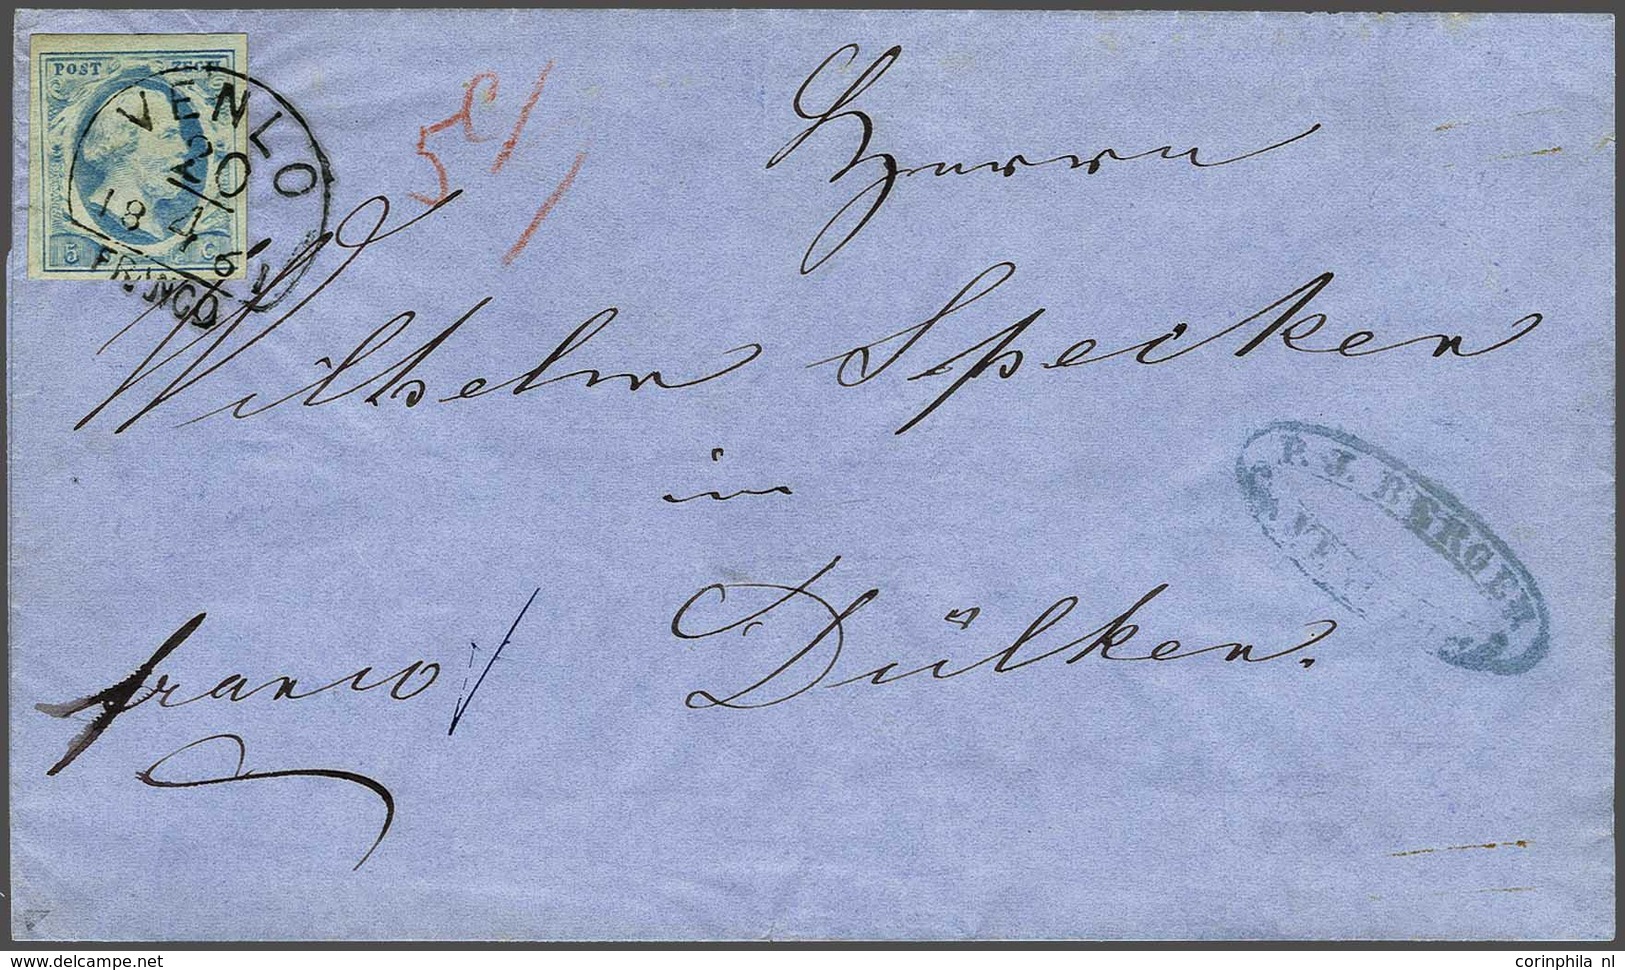 POST ZEGEL
5 C
VENLO
20
4
18 61
FRANCO
5 c/
Herrn
Wilhelm Specken
in
Dülken.
franco
P. J. BERGER
www.delcampe.net
corinphila nl